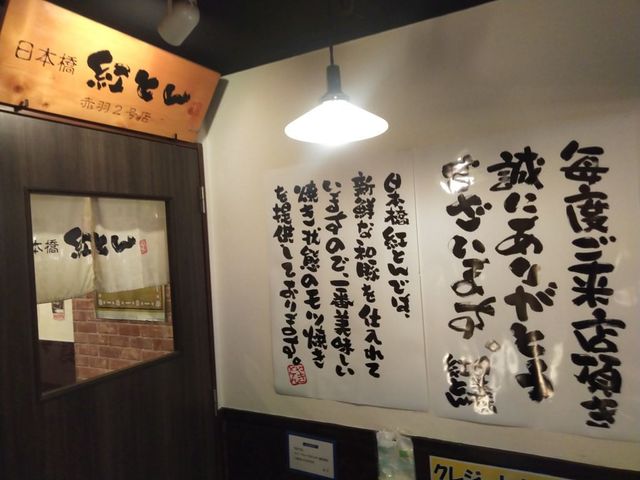 日本橋 紅とん
赤羽2号店
日本橋 紅とん
毎度ご来店頂き
誠にありがとう
ございます。紅とん
日本橋紅とんでは、
新鮮な和豚を仕入れて
いますので、一番美味しい
焼き状態のモツ焼き
を提供しております。
クレジット